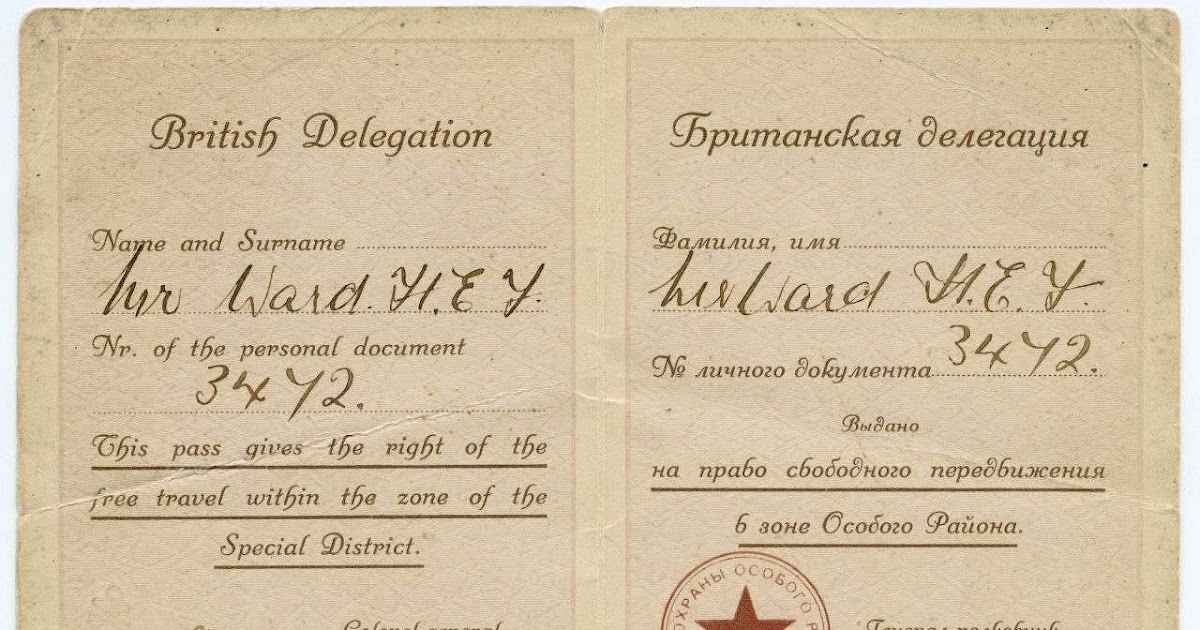 British Delegation
Name and Surname
Mr Ward. H. E. F.
Nr. of the personal document
3472.
This pass gives the right of the
free travel within the zone of the
Special District.
Colonel-general
Британская делегация
Фамилия, имя
Mr Ward H. E. F.
№ личного документа 3472.
Выдано
на право свободного передвижения
в зоне Особого Района.
ОХРАНЫ ОСОБОГО
Генерал-полковник